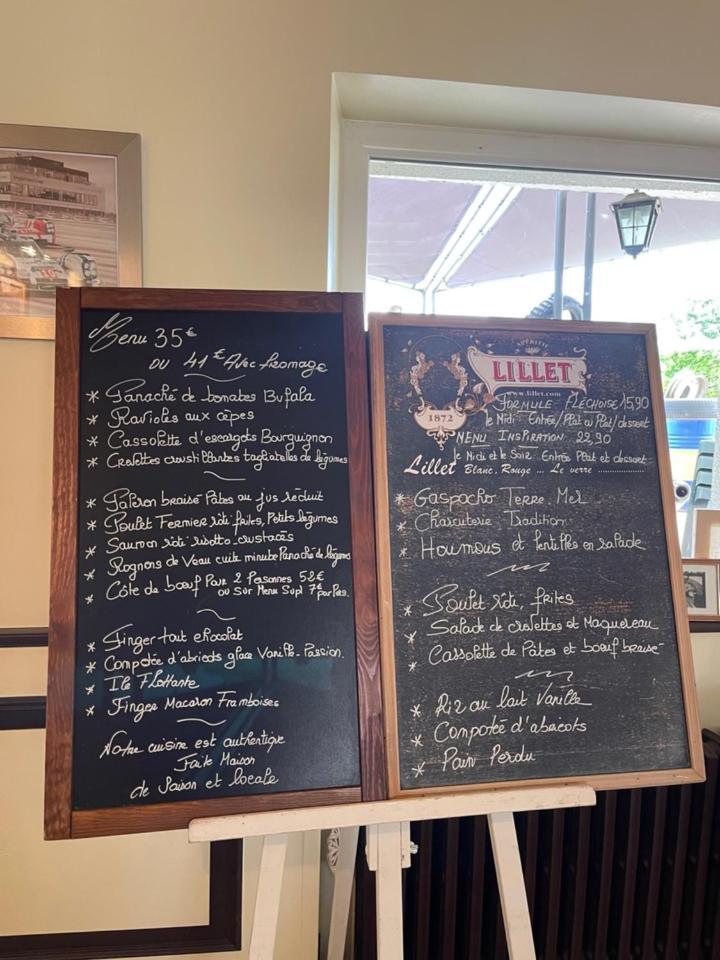 Menu 35€
ou 41€ Avec fromage
* Panaché de tomates Bufala
* Ravioles aux cèpes
* Cassolette d'escargots Bourguignon
* Crevettes croustillantes tagliatelles de légumes
* Paleron braisé Pâtes au jus réduit
* Poulet Fermier rôti frites, Petits légumes
* Saumon rôti risotto crustacés
* Rognons de Veau cuits minute Panaché de légumes
* Côte de boeuf Pour 2 Personnes 52€
ou Sur Menu Supl 7€ par Pers.
* Finger tout chocolat
* Compotée d'abricots glace Vanille-Passion.
* Ile Flottante
* Finger Macaron Framboises
Notre cuisine est authentique
Faite Maison
de Saison et locale
APÉRITIF
LILLET
www.lillet.com
1872
FORMULE FLÈCHOISE 15,90
le Midi Entrée/Plat ou Plat/dessert
MENU INSPIRATION 22,90
le Midi et le Soir Entrée Plat et dessert
Lillet Blanc, Rouge ... Le verre ..............
* Gaspacho Terre Mer
* Charcuterie Tradition
* Houmous et lentilles en salade
* Poulet rôti, frites
* Salade de crevettes et Maquereau
* Cassolette de Pâtes et boeuf braisé
* Riz au lait Vanille
* Compotée d'abricots
* Pain Perdu